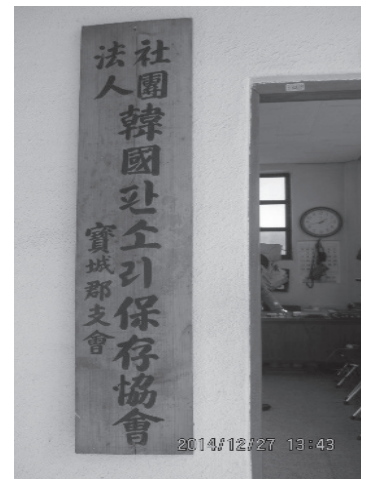 社團
法人
韓國판소리保存協會
寶城郡支會
2014/12/27 13:43